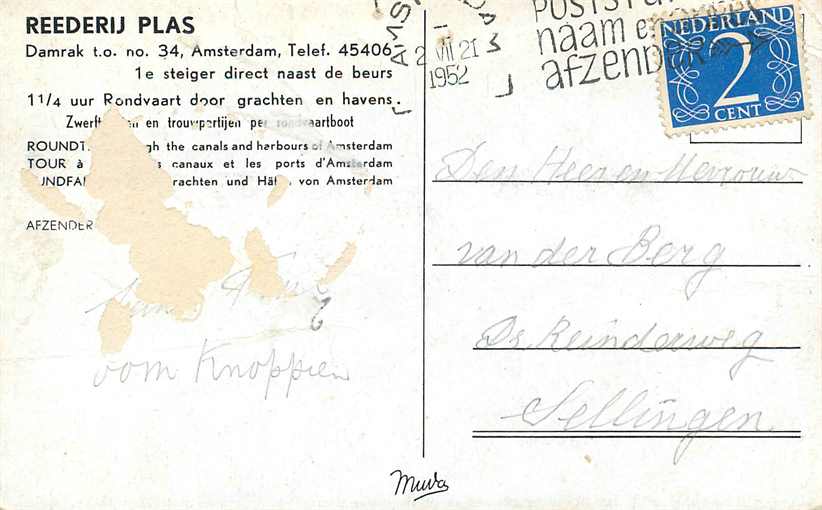 REEDERIJ PLAS
Damrak t.o. no. 34, Amsterdam, Telef. 45406
1e steiger direct naast de beurs
1 1/4 uur Rondvaart door grachten en havens.
Zwerft en en trouwpartijen per rondvaartboot
ROUNDT gh the canals and herbours of Amsterdam
TOUR à s canaux et les ports d'Amsterdam
UNDFA rachten und Hä von Amsterdam
AFZENDER
oom Knoppien
AMS DA
2 VII 21
1952
POSTST
naam e
afzend
NEDERLAND
2
CENT
Den Heer en Mevrouw
van der Berg
Ds. Reinderweg
Sellingen
Muva